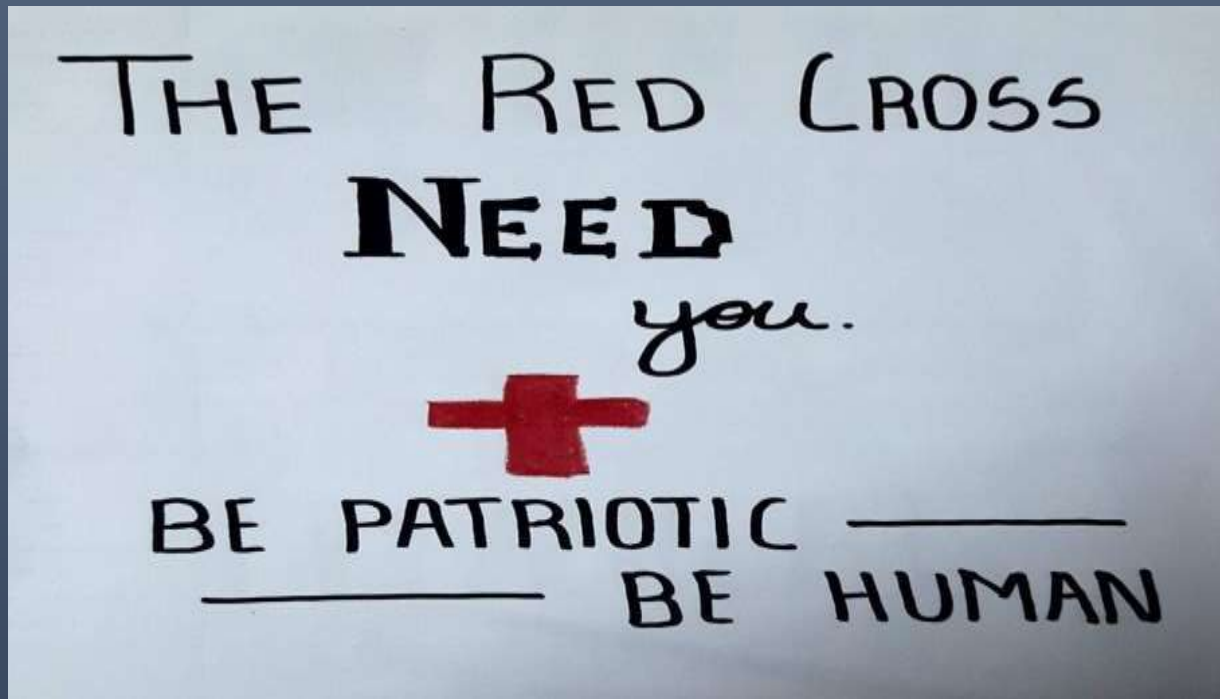 THE RED CROSS
NEED
you.
BE PATRIOTIC ———
——— BE HUMAN